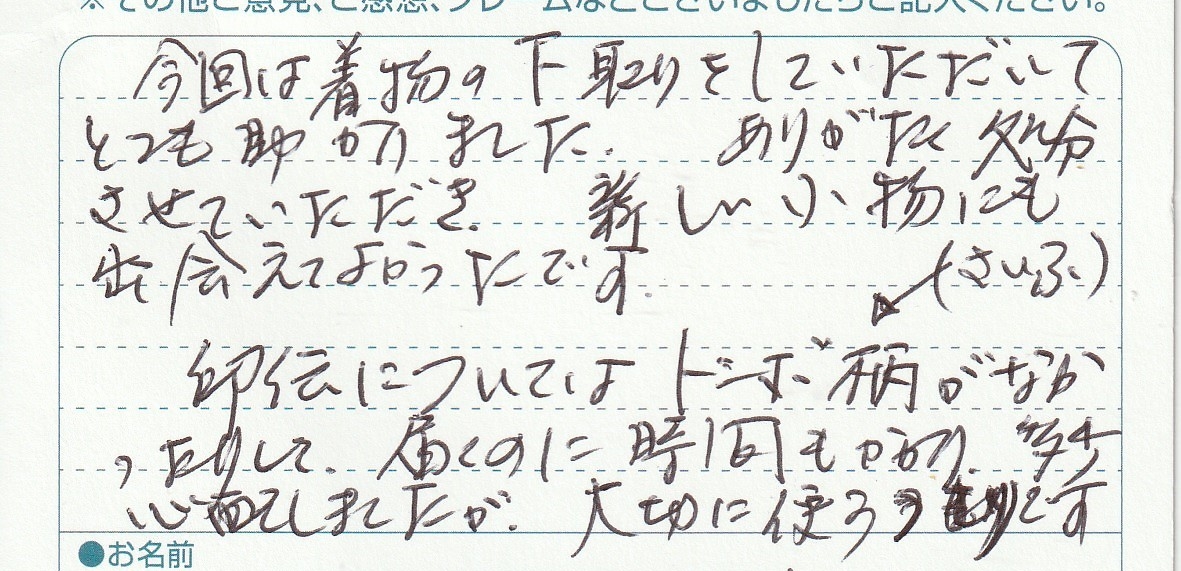 ※その他ご意見、ご感想、クレームなどございましたらご記入ください。
今回は着物の下取りをしていただいて
とても助かりました。ありがたく処分
させていただき、新しい小物にも
出会えてよかったです。
(さいふ)
印伝についてはトンボ柄がなか
ったりして、届くのに時間もかかり、多少
心配しましたが、大切に使うつもりです
●お名前